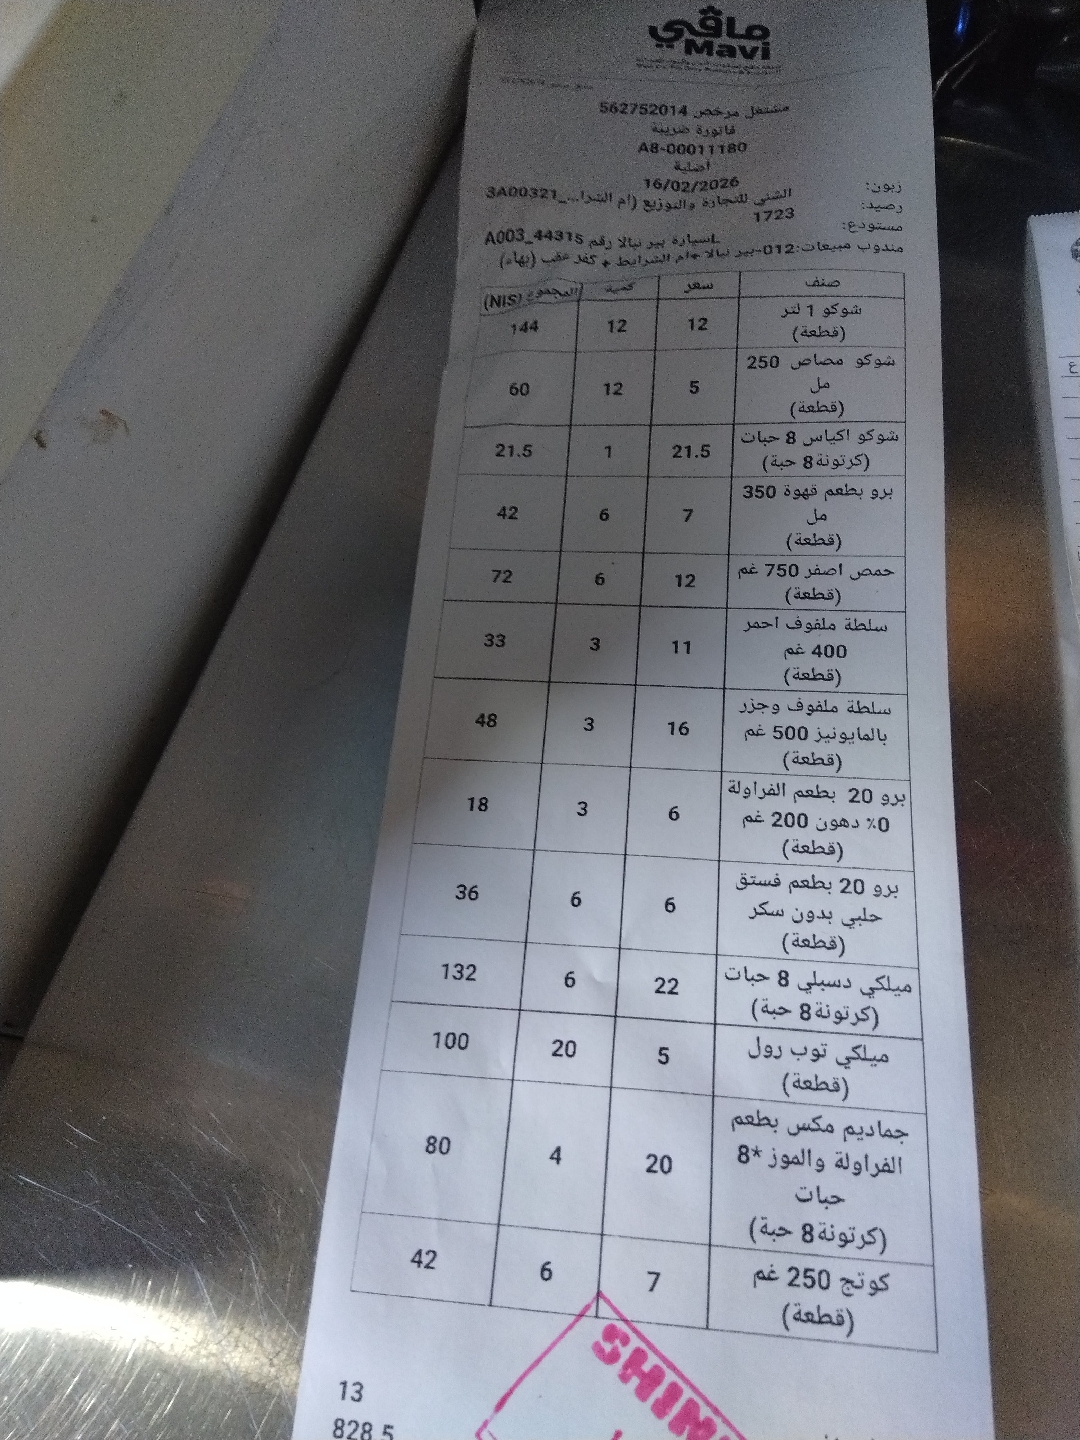 ماڤي
Mavi
مشتغل مرخص 562752014
فاتورة ضريبة
A8-00011180
اصلية
16/02/2026
زبون: الشني للتجارة والتوزيع (ام الشرا..._3A00321
رصيد: 1723
مستودع: سيارة بير نبالا رقم A003_4431S
مندوب مبيعات: 012-بير نبالا +ام الشرايط + كفر عقب (بهاء)
صنف سعر كمية المجموع (NIS)
شوكو 1 لتر
(قطعة) 12 12 144
شوكو مصاص 250
مل
(قطعة) 5 12 60
شوكو اكياس 8 حبات
(كرتونة8 حبة) 21.5 1 21.5
برو بطعم قهوة 350
مل
(قطعة) 7 6 42
حمص اصفر 750 غم
(قطعة) 12 6 72
سلطة ملفوف احمر
400 غم
(قطعة) 11 3 33
سلطة ملفوف وجزر
بالمايونيز 500 غم
(قطعة) 16 3 48
برو 20 بطعم الفراولة
0٪ دهون 200 غم
(قطعة) 6 3 18
برو 20 بطعم فستق
حلبي بدون سكر
(قطعة) 6 6 36
ميلكي دسبلي 8 حبات
(كرتونة8 حبة) 22 6 132
ميلكي توب رول
(قطعة) 5 20 100
جماديم مكس بطعم
الفراولة والموز *8
حبات
(كرتونة8 حبة) 20 4 80
كوتج 250 غم
(قطعة) 7 6 42
SHINI
13
828.5